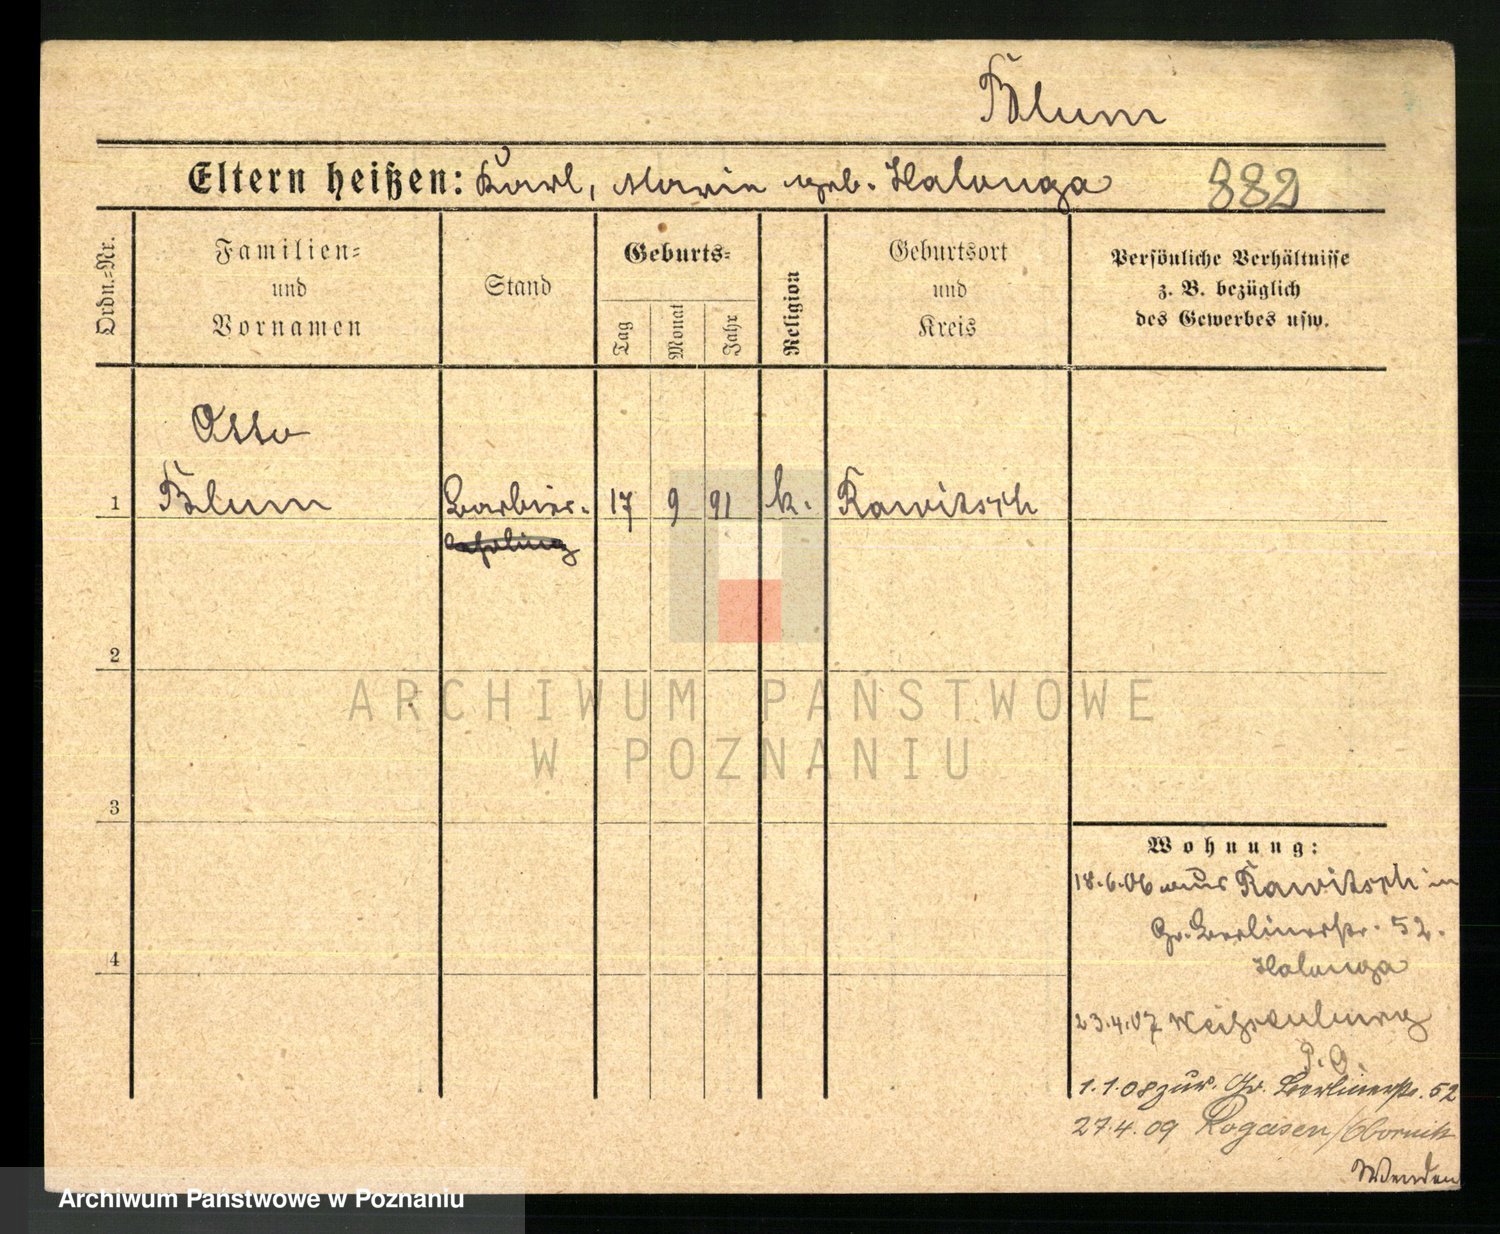 Blum
Eltern heißen: Karl, Marie geb. Halanga 882
Ordn.-Nr.
Familien-
und
Vornamen
Stand
Geburts-
Tag
Monat
Jahr
Religion
Geburtsort
und
Kreis
Persönliche Verhältnisse
z. B. bezüglich
des Gewerbes usw.
Otto
1 Blum Barbier- 17 9 91 k. Rawitsch
lehrling
2
3
4
ARCHIWUM PAŃSTWOWE
W POZNANIU
Wohnung:
18.6.06 aus Rawitsch in
Gr. Berlinerstr. 52.
Halanga
23.4.07
1.1.08 zur. Gr. Berlinerstr. 52
27.4.09 Rogasen/Obornik
Wenden
Archiwum Państwowe w Poznaniu